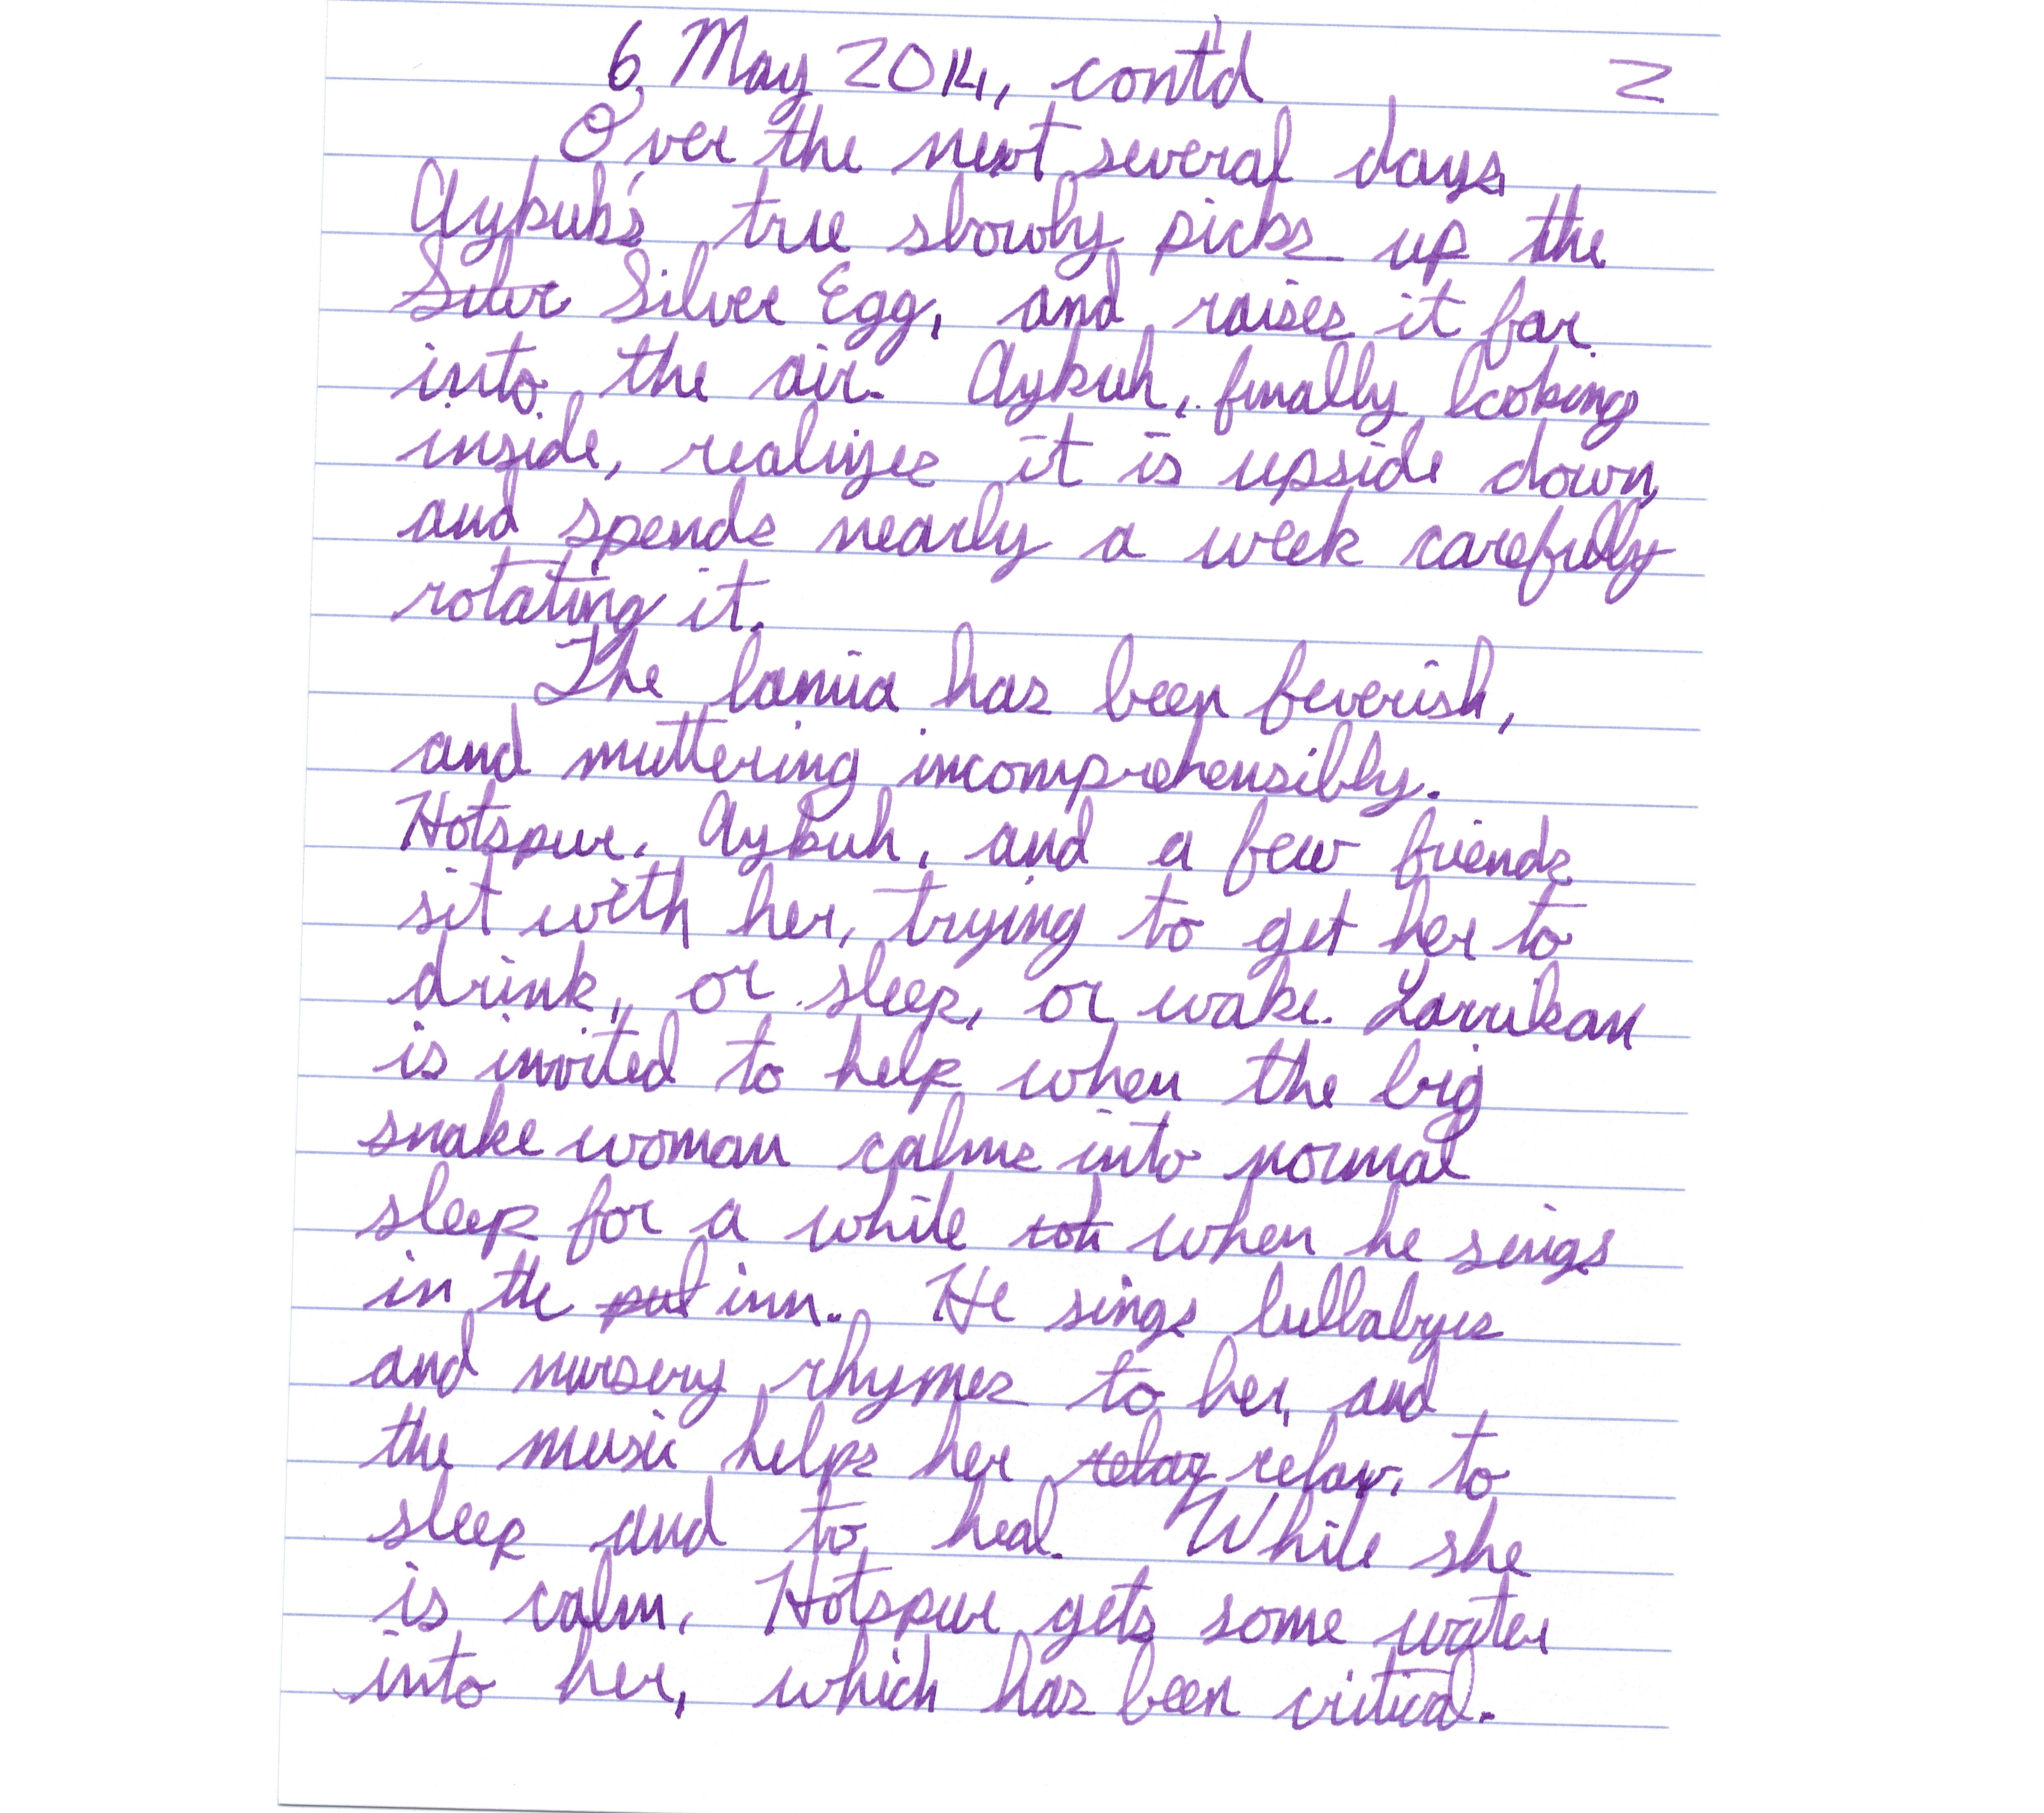 6 May 2014, cont'd 2
Over the next several days,
Aykuh's tree slowly picks up the
Silvr Silver Egg, and raises it far
into the air. Aykuh, finally looking
inside, realizes it is upside down,
and spends nearly a week carefully
rotating it.
The lamia has been feverish,
and muttering incomprehensibly.
Hotspur, Aykuh, and a few friends
sit with her, trying to get her to
drink, or sleep, or wake. Larrikan
is invited to help when the big
snake woman calms into normal
sleep for a while when he sings
in the inn. He sings lullabyes
and nursery rhymes to her, and
the music helps her relax, to
sleep and to heal. While she
is calm, Hotspur gets some water
into her, which has been critical.